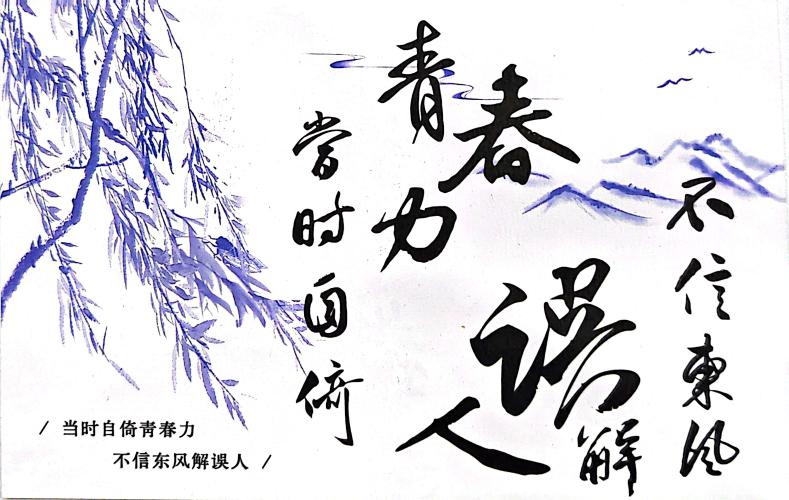 當时自倚
青春力
不信東风
解误人
/ 当时自倚青春力
不信东风解误人 /